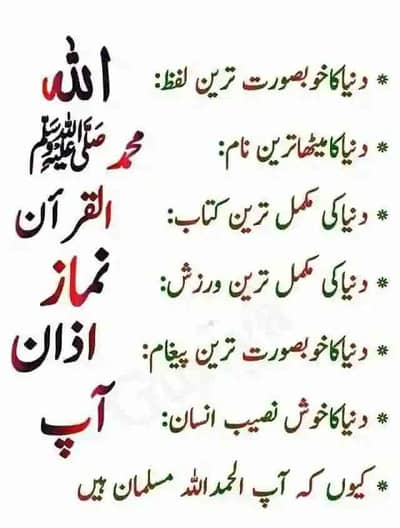 * دنیا کا خوبصورت ترین لفظ: اللہ
* دنیا کا میٹھا ترین نام: محمد صَلَّی اللہُ عَلَیْہِ وَسَلَّم
* دنیا کی مکمل ترین کتاب: القرآن
* دنیا کی مکمل ترین ورزش: نماز
* دنیا کا خوبصورت ترین پیغام: اذان
* دنیا کا خوش نصیب انسان: آپ
* کیوں کہ آپ الحمداللہ مسلمان ہیں